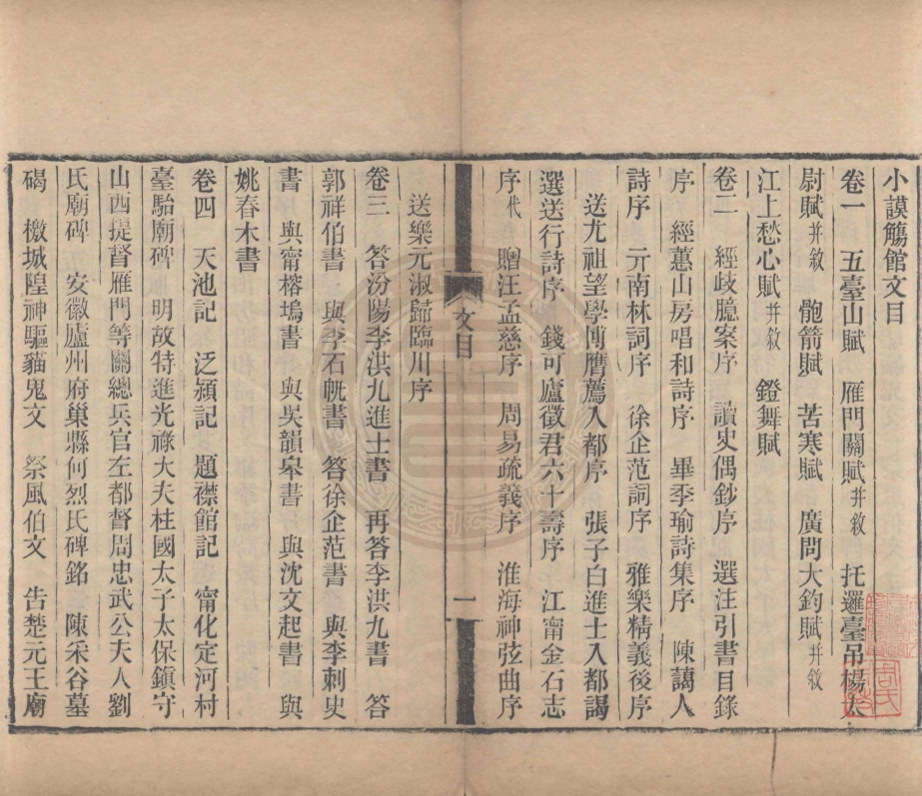 小謨觴館文目
卷一　五臺山賦　雁門關賦并敘　托邏臺弔楊太
尉賦并敘　骲箭賦　苦寒賦　廣問大鈞賦并敘
江上愁心賦并敘　鐙舞賦
卷二　經歧臆案序　讀史偶鈔序　選注引書目錄
序　經蕙山房唱和詩序　畢季瑜詩集序　陳藹人
詩序　亓南林詞序　徐企范詞序　雅樂精義後序
送尤祖望學博膺薦入都序　張子白進士入都謁
選送行詩序　錢可廬徵君六十壽序　江甯金石志
序代　贈汪孟慈序　周易疏義序　淮海神弦曲序
文目
一
送樂元淑歸臨川序
卷三　答汾陽李洪九進士書　再答李洪九書　答
郭祥伯書　與李石帆書　答徐企范書　與李刺史
書　與甯榕塢書　與吳韻皋書　與沈文起書　與
姚春木書
卷四　天池記　泛潁記　題襟館記　甯化定河村
臺駘廟碑　明故特進光祿大夫柱國太子太保鎮守
山西提督雁門等關總兵官左都督周忠武公夫人劉
氏廟碑　安徽廬州府巢縣何烈氏碑銘　陳采谷墓
碣　檄城隍神驅貓鬼文　祭風伯文　告楚元王廟